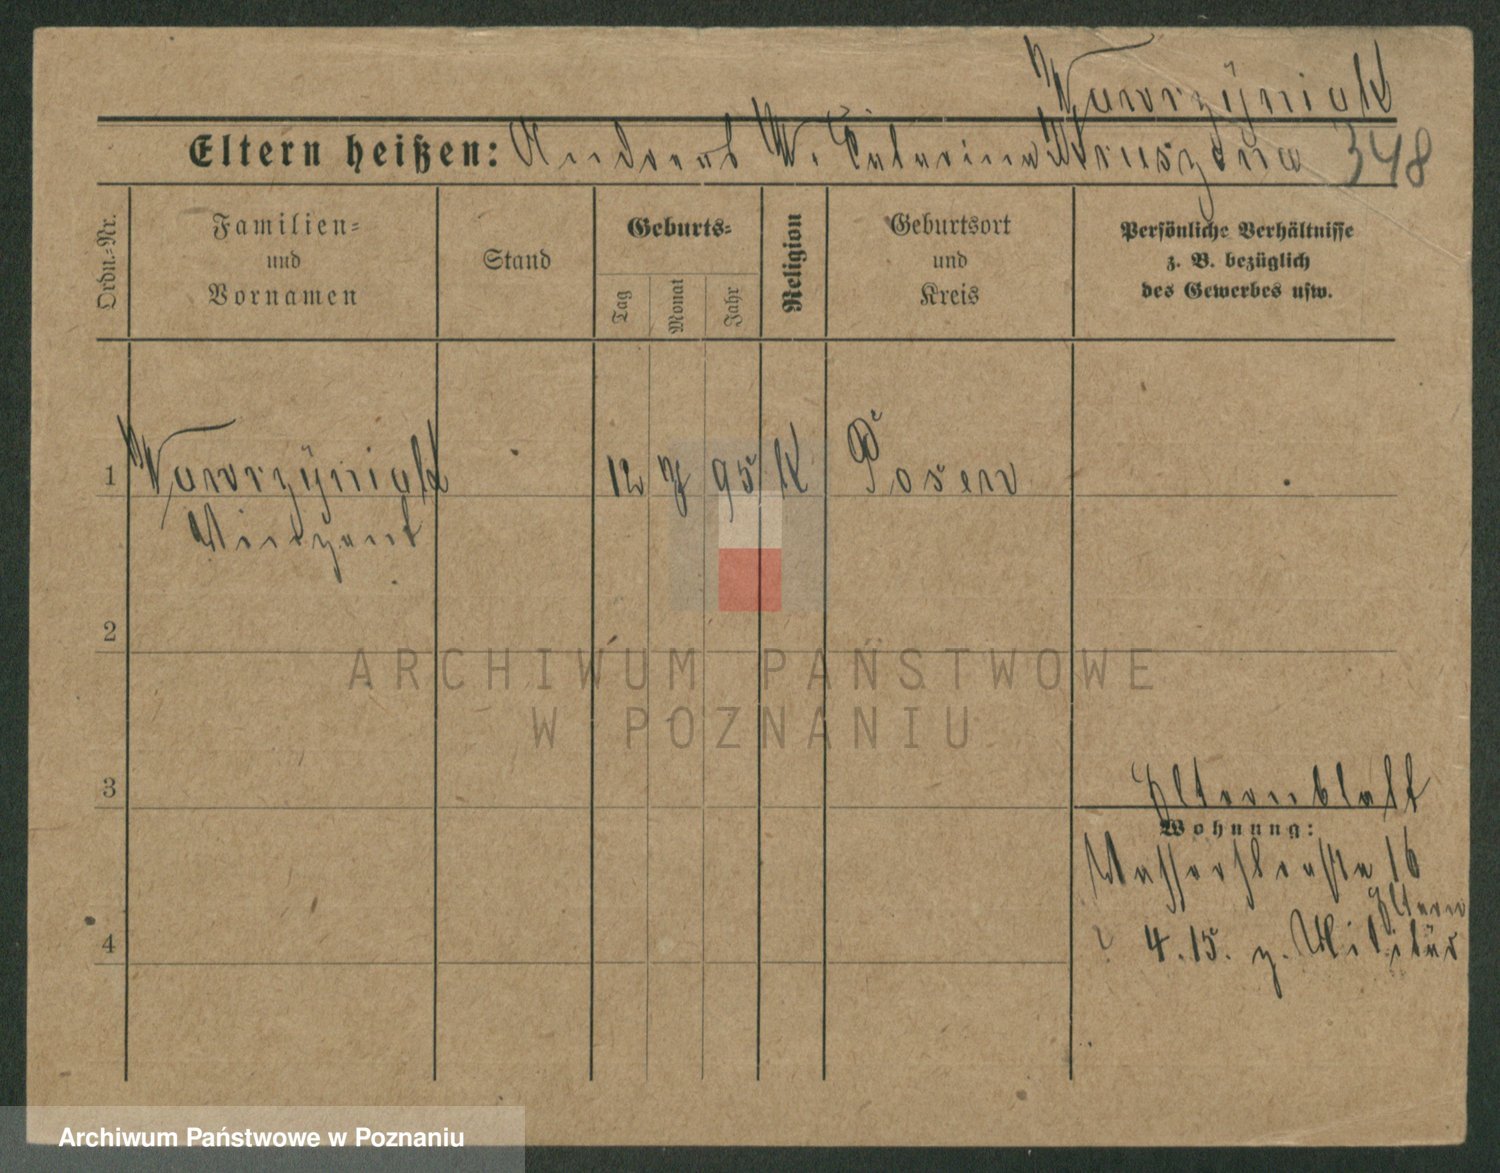 Wawrzÿniak
Eltern heißen: Andreas W. Catarina Kruszona 348
Ordn.-Nr.
Familien-
und
Vornamen
Stand
Geburts-
Tag
Monat
Jahr
Religion
Geburtsort
und
Kreis
Persönliche Verhältnisse
z. B. bezüglich
des Gewerbes usw.
1 Wawrzÿniak 12 7 95 K Posen
Vinzent
2
ARCHIWUM PAŃSTWOWE
W POZNANIU
3
Elternblatt
Wohnung:
16
Eltern
4
4.15. z. Militär
Archiwum Państwowe w Poznaniu